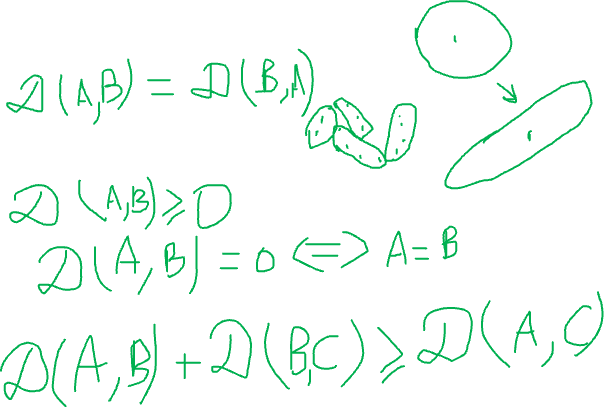 D(A,B) = D(B,A)
D(A,B) ≥ 0
D(A,B) = 0 <=> A = B
D(A,B) + D(B,C) ≥ D(A,C)